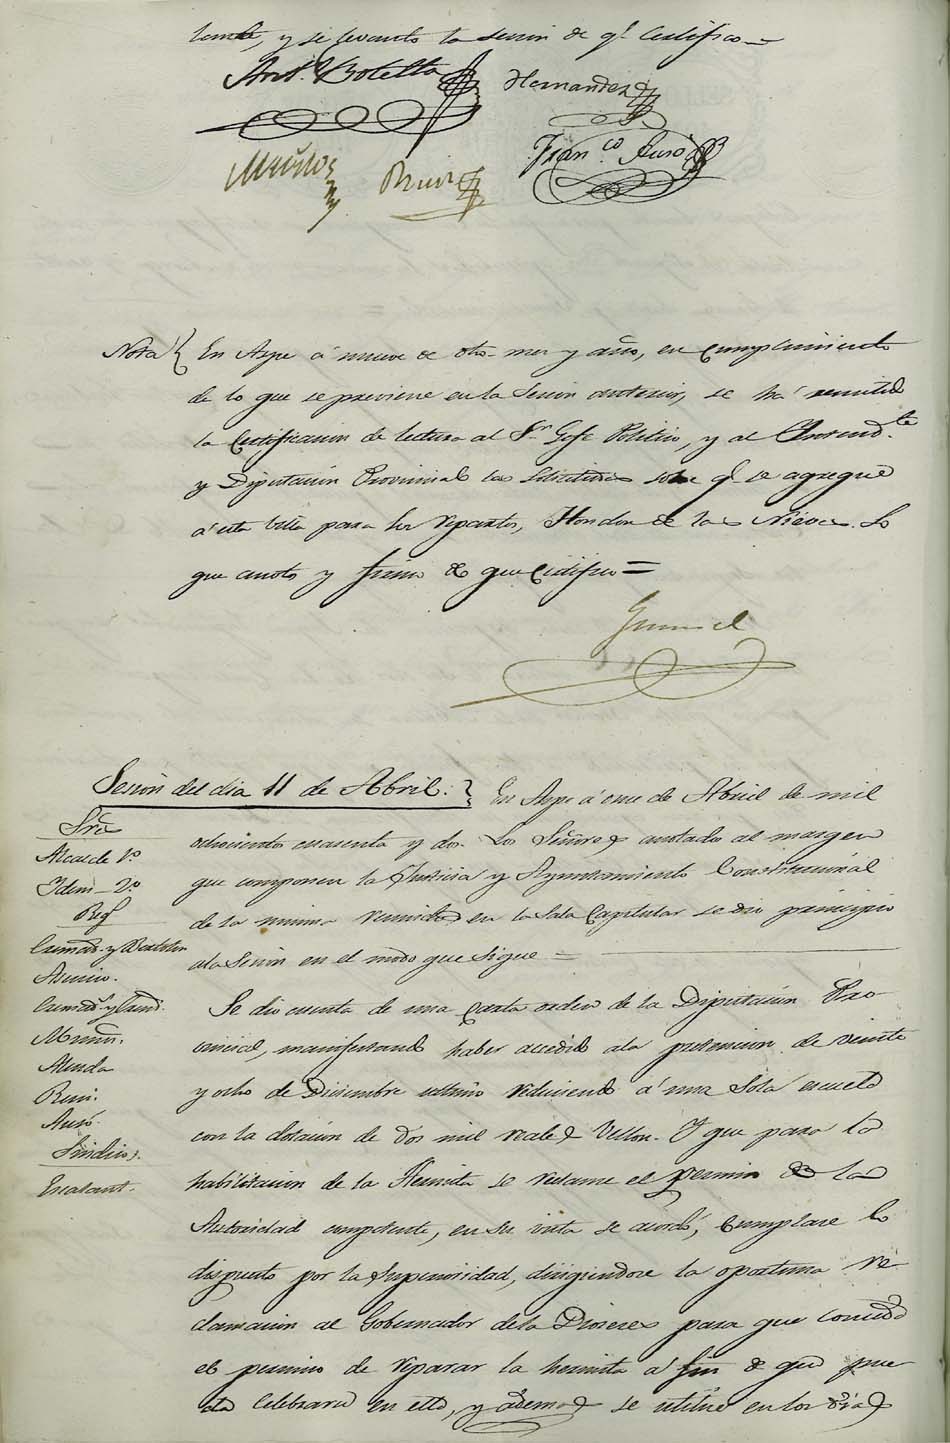 y se levantó la sesion de q.e Certifico =
Ant.o Botella Hernandez
Muñoz Ruiz Fran.co Auso
Nota En Aspe á nueve de dho. mes y año, en cumplimiento
de lo que se previene en la Sesion anterior, se há remitido
la Certificacion de lectura al S.r Gefe Politico, y al Intend.te
y Diputacion Provincial las solicitudes sobre q.e se agregue
á esta Villa para los repartos, Hondon de las Nieves. Lo
que anoto y firmo de que Certifico =
Sesion del dia 11 de Abril. En Aspe á once de Abril de mil
ochocientos cuarenta y dos. Los Señores anotados al margen
que componen la Justicia y Ayuntamiento Constitucional
de la misma reunidos en la Sala Capitular se dio principio
ala Sesion en el modo que sigue =
Sres
Alcalde 1.o
Idem 2.o
Reg
Asencio.
Almda
Ruiz.
Ausó.
Sindico.
Escalant.
Se dio cuenta de una Carta orden de la Diputacion Pro
vincial, manifestando haber accedido ala pretencion de veinte
y ocho de Diciembre ultimo reduciendo á una sola escuela
con la dotacion de dos mil reales Vellon. Y que para la
habilitacion de la Hermita se reclame el permiso de la
Autoridad competente, en su vista se acordó, Cumplase lo
dispuesto por la Superioridad, dirigiendose la oportuna re
clamacion al Gobernador dela Diocesis para que conceda
el permiso de reparar la hermita á fin de que pue
da Celebrarse en ella, y ademas se utilice en los dias